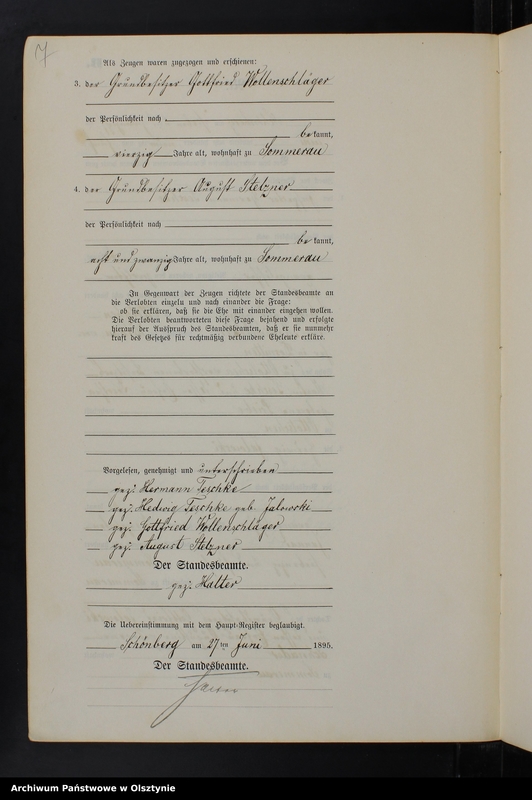 7
Als Zeugen waren zugezogen und erschienen:
3. der Grundbesitzer Gottfried Wollenschläger
der Persönlichkeit nach
be kannt,
vierzig Jahre alt, wohnhaft zu Sommerau
4. der Grundbesitzer August Stelzner
der Persönlichkeit nach
be kannt,
acht und zwanzig Jahre alt, wohnhaft zu Sommerau
In Gegenwart der Zeugen richtete der Standesbeamte an
die Verlobten einzeln und nach einander die Frage:
ob sie erklären, daß sie die Ehe mit einander eingehen wollen.
Die Verlobten beantworteten diese Frage bejahend und erfolgte
hierauf der Ausspruch des Standesbeamten, daß er sie nunmehr
kraft des Gesetzes für rechtmäßig verbundene Eheleute erkläre.
Vorgelesen, genehmigt und unterschrieben
gez. Hermann Teschke
gez. Hedwig Teschke geb. Jalowski
gez. Gottfried Wollenschläger
gez. August Stelzner
Der Standesbeamte.
gez. Halter
Die Uebereinstimmung mit dem Haupt-Register beglaubigt.
Schönberg am 27ten Juni 1895.
Der Standesbeamte.
Archiwum Państwowe w Olsztynie